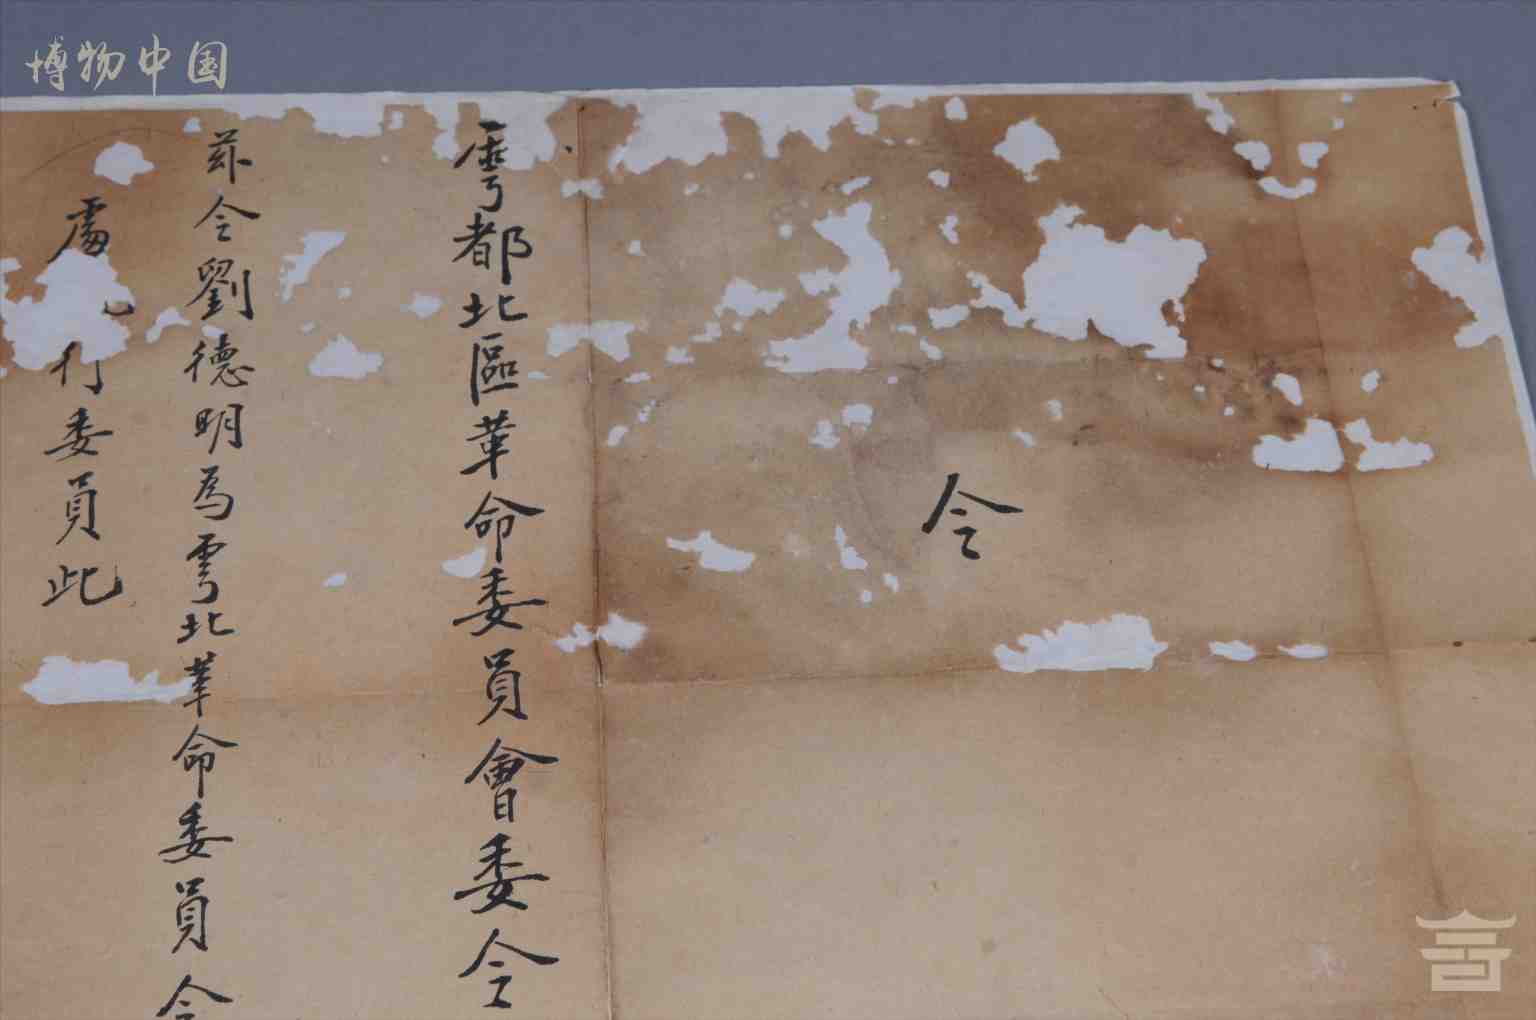 博物中国
令
雩都北區革命委員會委令
茲令劉德明為雩北革命委員會
處 行委員此